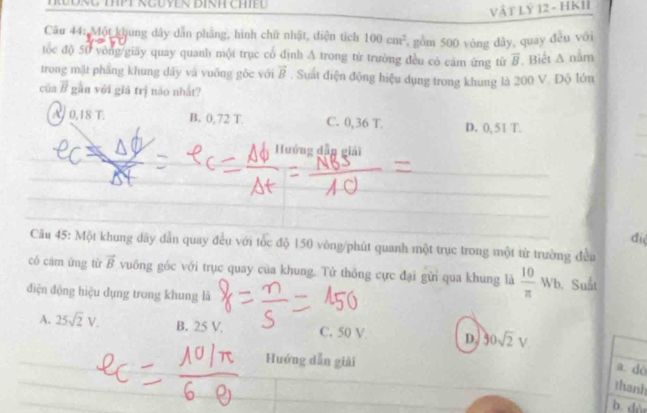 TRƯỜNG THPT NGUYỄN ĐÌNH CHIỂU
VẬT LÝ 12 - HKII
Câu 44: Một khung dây dẫn phẳng, hình chữ nhật, diện tích 100 cm², gồm 500 vòng dây, quay đều với
f = 50
tốc độ 50 vòng/giây quay quanh một trục cố định Δ trong từ trường đều có cảm ứng từ B⃗. Biết Δ nằm
trong mặt phẳng khung dây và vuông góc với B⃗. Suất điện động hiệu dụng trong khung là 200 V. Độ lớn
của B⃗ gần với giá trị nào nhất?
A. 0,18 T. B. 0,72 T. C. 0,36 T. D. 0,51 T.
Hướng dẫn giải
ec = Δφ/Δt = ec = Δφ/Δt = NBS/10 =
Câu 45: Một khung dây dẫn quay đều với tốc độ 150 vòng/phút quanh một trục trong một từ trường đều
có cảm ứng từ B⃗ vuông góc với trục quay của khung. Từ thông cực đại gửi qua khung là 10/π Wb. Suất
điện động hiệu dụng trong khung là
f = n/s = 150
A. 25√2 V. B. 25 V. C. 50 V. D. 50√2 V.
Hướng dẫn giải
ec = 10/π / 60
a. dò
thanh
b. dò